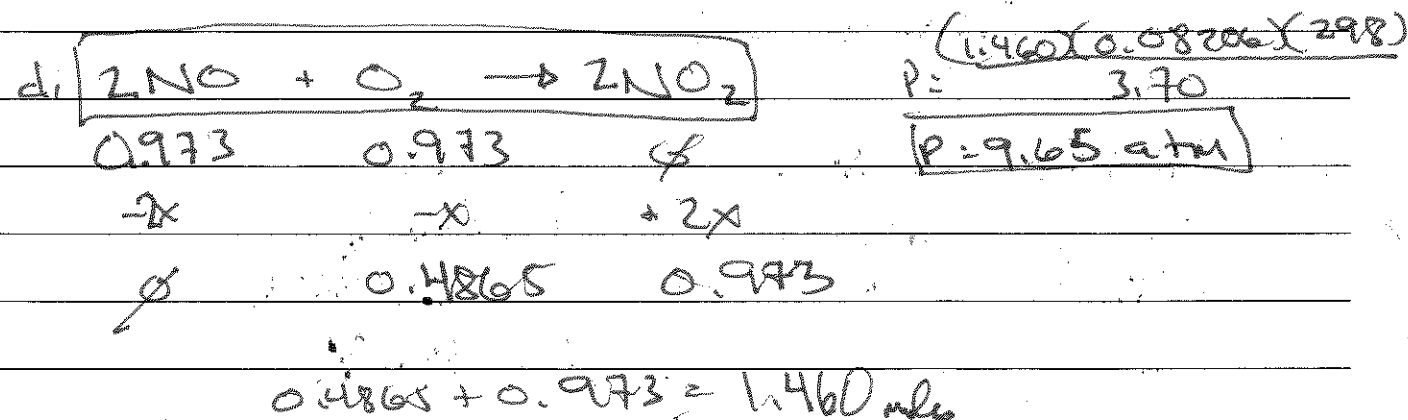 d. 2NO + O₂ → 2NO₂
0.973 0.973 ∅
-2x -x +2x
∅ 0.4865 0.973
0.4865 + 0.973 = 1.460 moles
P = (1.460)(0.08206)(298)
3.70
P = 9.65 atm